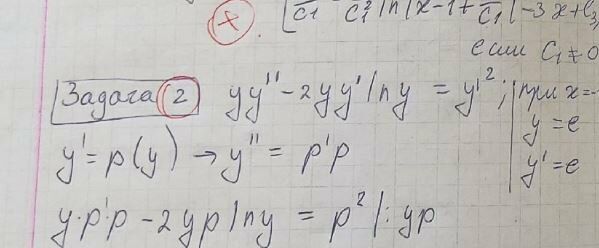 x. c1 c1² ln|x-1+ 1/c1| -3x+C3,
если C1≠0
Задача 2 yy'' - 2yy' ln y = y'²; при x=-
y = e
y' = e
y' = p(y) → y'' = p'p
y·p'p - 2yp ln y = p² |: yp